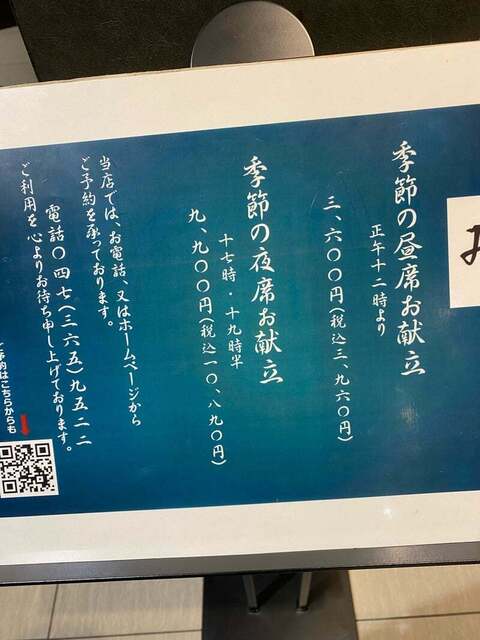 季節の昼席お献立
正午十二時より
三、六〇〇円(税込三、九六〇円)
季節の夜席お献立
十七時・十九時半
九、九〇〇円(税込一〇、八九〇円)
当店では、お電話、又はホームページから
ご予約を承っております。
電話〇四七(三六五)九五二二
ご利用を心よりお待ち申し上げております。
ご予約はこちらからも